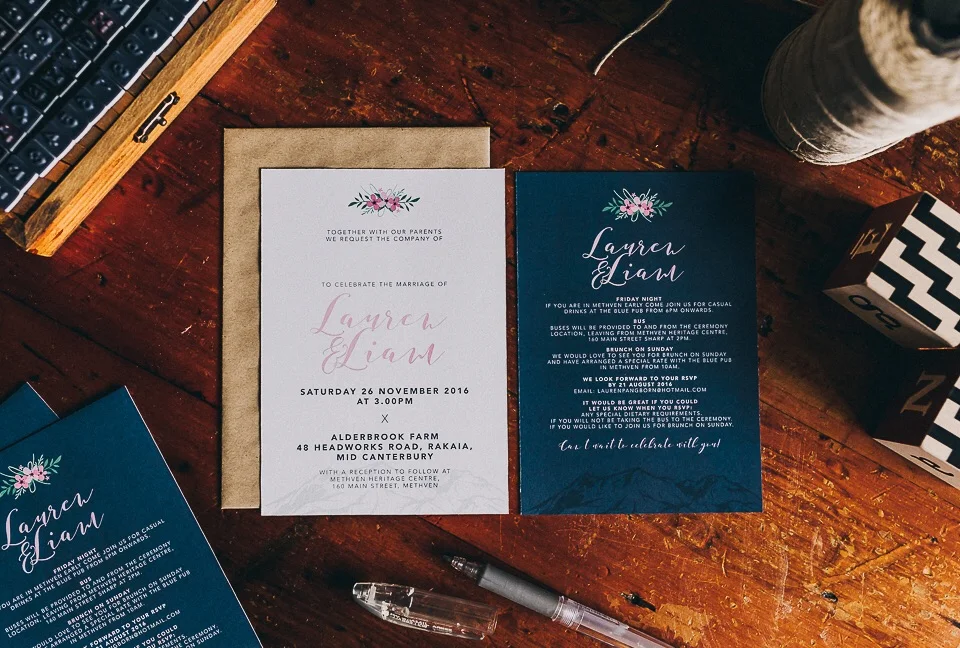 TOGETHER WITH OUR PARENTS
WE REQUEST THE COMPANY OF
TO CELEBRATE THE MARRIAGE OF
Lauren
&Liam
SATURDAY 26 NOVEMBER 2016
AT 3.00PM
X
ALDERBROOK FARM
48 HEADWORKS ROAD, RAKAIA,
MID CANTERBURY
WITH A RECEPTION TO FOLLOW AT
METHVEN HERITAGE CENTRE,
160 MAIN STREET, METHVEN
Lauren
&Liam
FRIDAY NIGHT
IF YOU ARE IN METHVEN EARLY COME JOIN US FOR CASUAL
DRINKS AT THE BLUE PUB FROM 6PM ONWARDS.
BUS
BUSES WILL BE PROVIDED TO AND FROM THE CEREMONY
LOCATION, LEAVING FROM METHVEN HERITAGE CENTRE,
160 MAIN STREET SHARP AT 2PM.
BRUNCH ON SUNDAY
WE WOULD LOVE TO SEE YOU FOR BRUNCH ON SUNDAY
AND HAVE ARRANGED A SPECIAL RATE WITH THE BLUE PUB
IN METHVEN FROM 10AM.
WE LOOK FORWARD TO YOUR RSVP
BY 21 AUGUST 2016
EMAIL: LAURENPANGBORN@HOTMAIL.COM
IT WOULD BE GREAT IF YOU COULD
LET US KNOW WHEN YOU RSVP:
ANY SPECIAL DIETARY REQUIREMENTS.
IF YOU WILL NOT BE TAKING THE BUS TO THE CEREMONY.
IF YOU WOULD LIKE TO JOIN US FOR BRUNCH ON SUNDAY.
Can't wait to celebrate with you!
Lauren
&Liam
FRIDAY NIGHT
YOU ARE IN METHVEN EARLY COME JOIN US FOR CASUAL
DRINKS AT THE BLUE PUB FROM 6PM ONWARDS.
BUS
BUSES WILL BE PROVIDED TO AND FROM THE CEREMONY
LOCATION, LEAVING FROM METHVEN HERITAGE CENTRE,
160 MAIN STREET SHARP AT 2PM.
BRUNCH ON SUNDAY
WOULD LOVE TO SEE YOU FOR BRUNCH ON SUNDAY
ARRANGED A SPECIAL RATE WITH THE BLUE PUB
IN METHVEN FROM 10AM.
FORWARD TO YOUR RSVP
AUGUST 2016
@HOTMAIL.COM
IF YOU COULD
YOU RSVP:
E
N